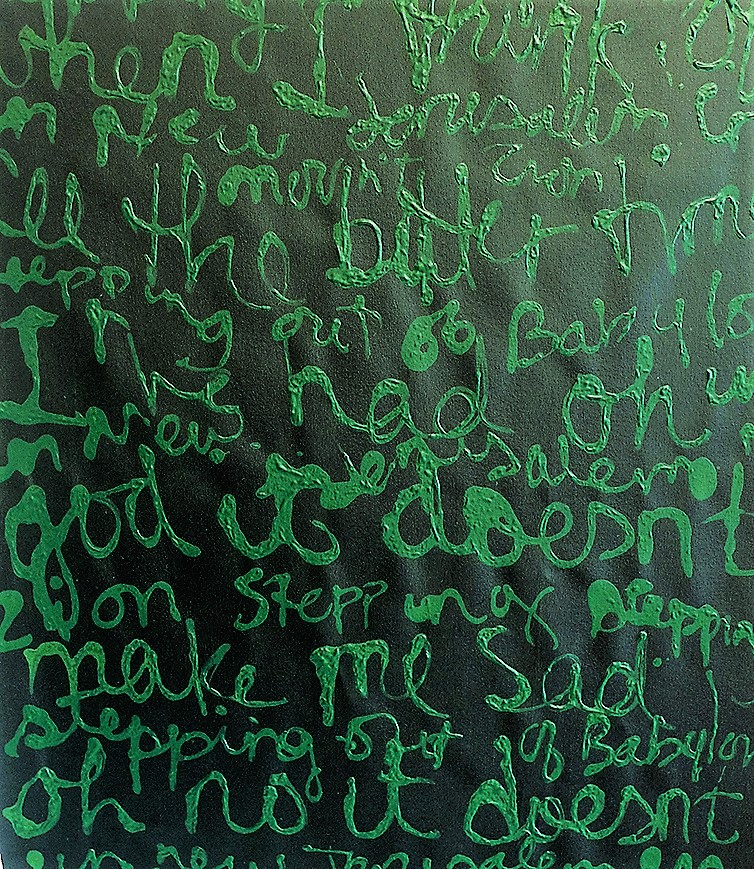 when I think of
in New Jerusalem in
movin' Zion
ll the bitter tim
stepping out of Babylo
I ve had oh
in new Jerusalem
god it doesnt
Zion stepp ing steppin
make me sad
stepping out of Babylon
oh no it doesnt
in new Jerusalem in